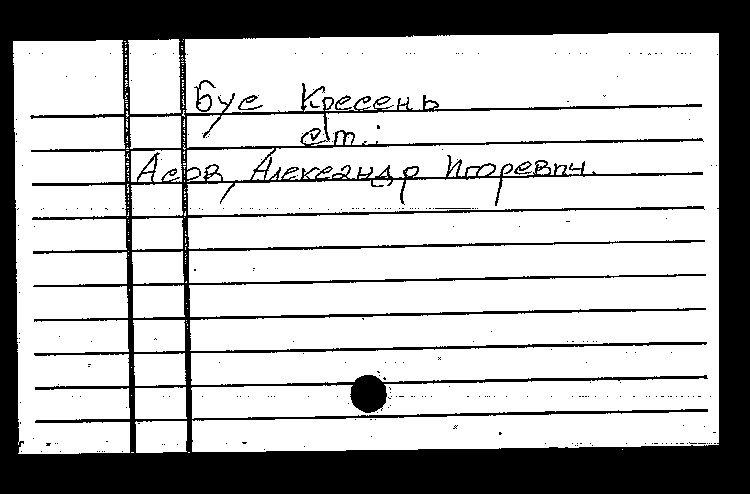 Бус Кресень
см.:
Асов, Александр Игоревич.